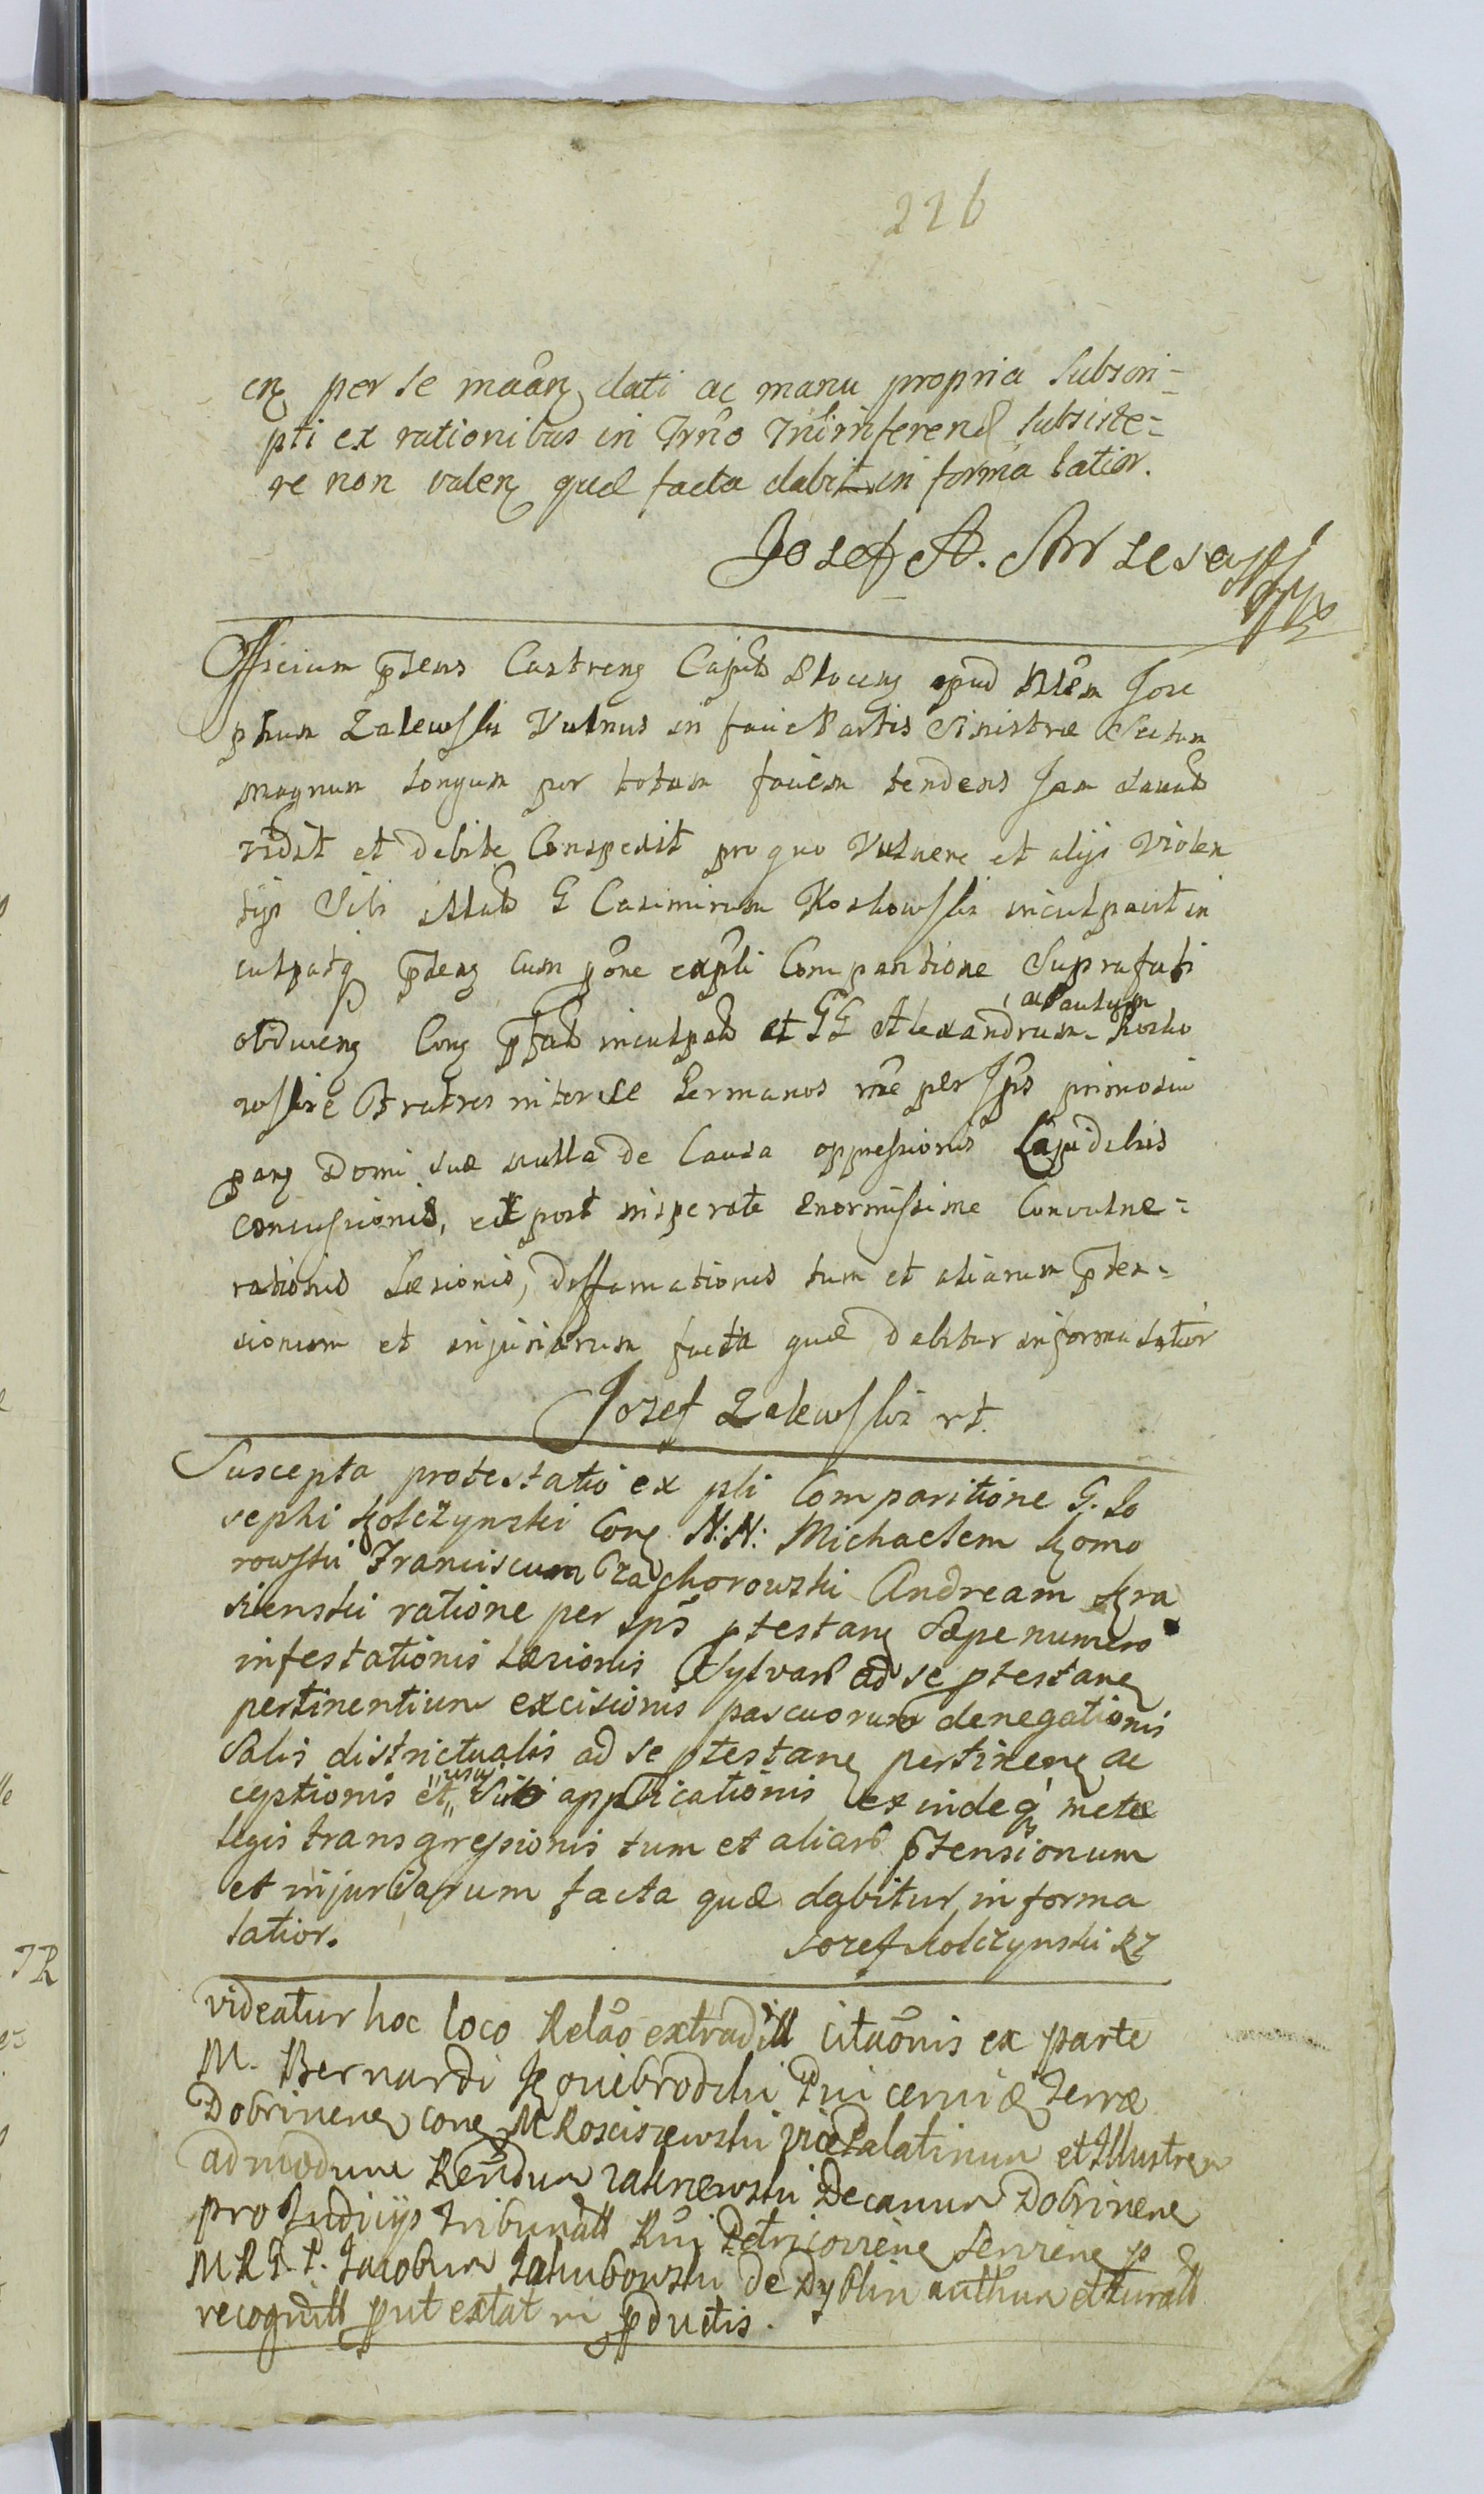 226
per se dati ac manu propria subscri-
pti ex rationibus in Trno inferend subsiste-
re non valen quæ facta dabit in forma latior.
Josef A.
Officium pñens Castren Capitt Plocen apud Nlem Jose
phum Zalewski Vulnus in facie Partis Sinistræ Sectum
magnum longum per totam faciem tendens Jam
vidit et debite Conspexit pro quo Vulnere et alijs Violen
tijs Sibi illatt G Casimirum Koskowski inculpavit in
culpatq pñens cum põne expli Comparitione Suprafati
obducen Con pfatt inculpatt et GG Alexandrum ac Paulum Kosko
wskie Fratres inter se Germanos rñe per Jps
Domi suæ nulla de Causa oppressionis Lapidibus
concussionis, et post insperate enormissime Convulne-
rationis Læsionis, Deffamationis tum et aliarum pten-
sionum et injuriarum facta quæ dabitur in forma latior
Jozef Zalewski rt.
Suscepta protestatio ex pli Comparitione G. Jo
sephi Kolczynski Con N:N: Michaelem Komo
rowski Franciscum Andream Kra
sienski ratione per ips ptestan sæpenumero
infestationis læsionis Sylvarũ ad se ptestane
pertinentium excisionis pascuorum denegationis
Salis districtualis ad se ptestane pertinene ac
ceptionis et usui Sui applicationis exindeq metæ
legis transgressionis tum et aliarũ ptensionum
et injuriarum facta quæ dabitur in forma
latior.
Jozef Kolczynski RZ
videatur hoc loco Relão extradit citaõnis ex parte
M. Bernardi Pincernæ Terræ
Dobrinene cone M Rosciszewski vicePalatinum et Illustrem
admodum Rẽndum Decanum Dobrinene
pro Judicijs Tribunall Rñi Petricoviene
M R G. P. Jacobum Jakubowski de Dyblin
recognitt put extat in pductis.